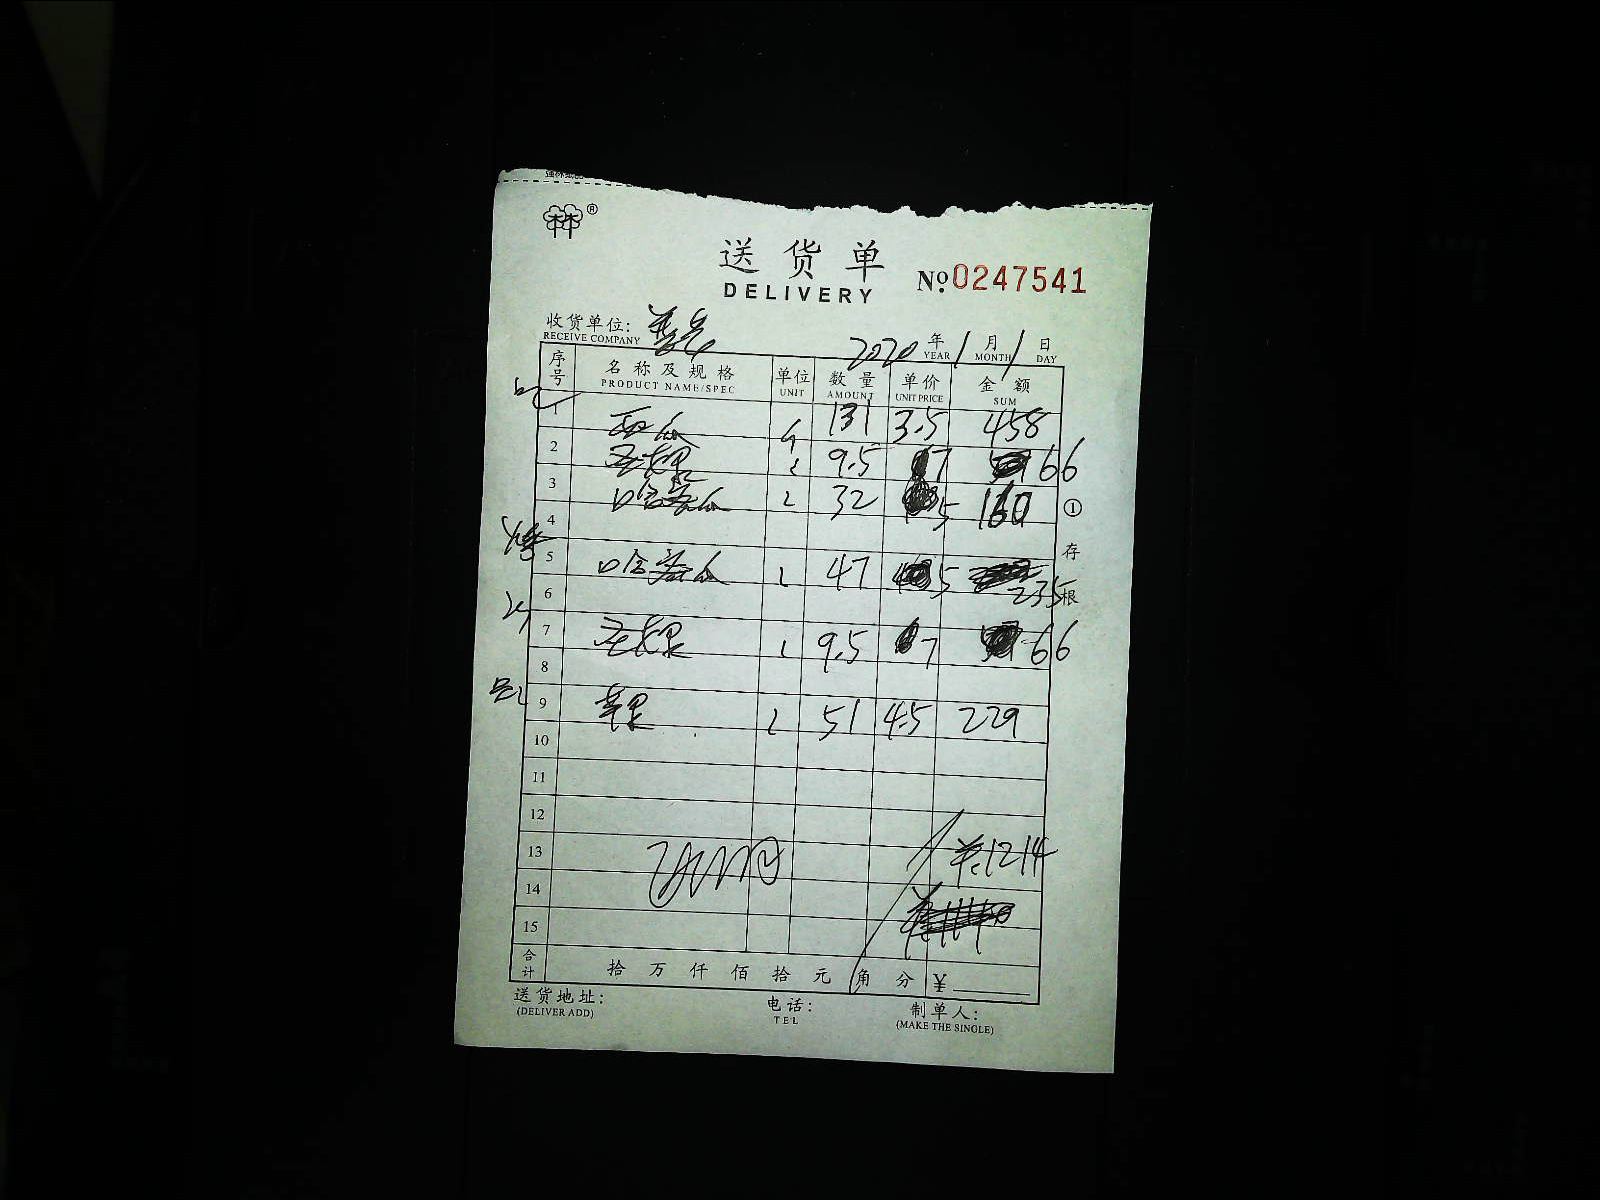 送货单
DELIVERY
№ 0247541
收货单位:
RECEIVE COMPANY
2020 年 1 月 1 日
YEAR MONTH DAY
序号 名称及规格 单位 数量 单价 金额
PRODUCT NAME/SPEC UNIT AMOUNT UNIT PRICE SUM
1 西瓜 斤 131 3.5 458
2 9.5 7 66
3 哈密瓜 32 5 160
4
5 哈密瓜 47 5 235
6
7 9.5 7 66
8
9 苹果 51 4.5 229
10
11
12
13 1214
14
15
合计 拾 万 仟 佰 拾 元 角 分 ¥
① 存根
送货地址: 电话: 制单人:
(DELIVER ADD) TEL (MAKE THE SINGLE)